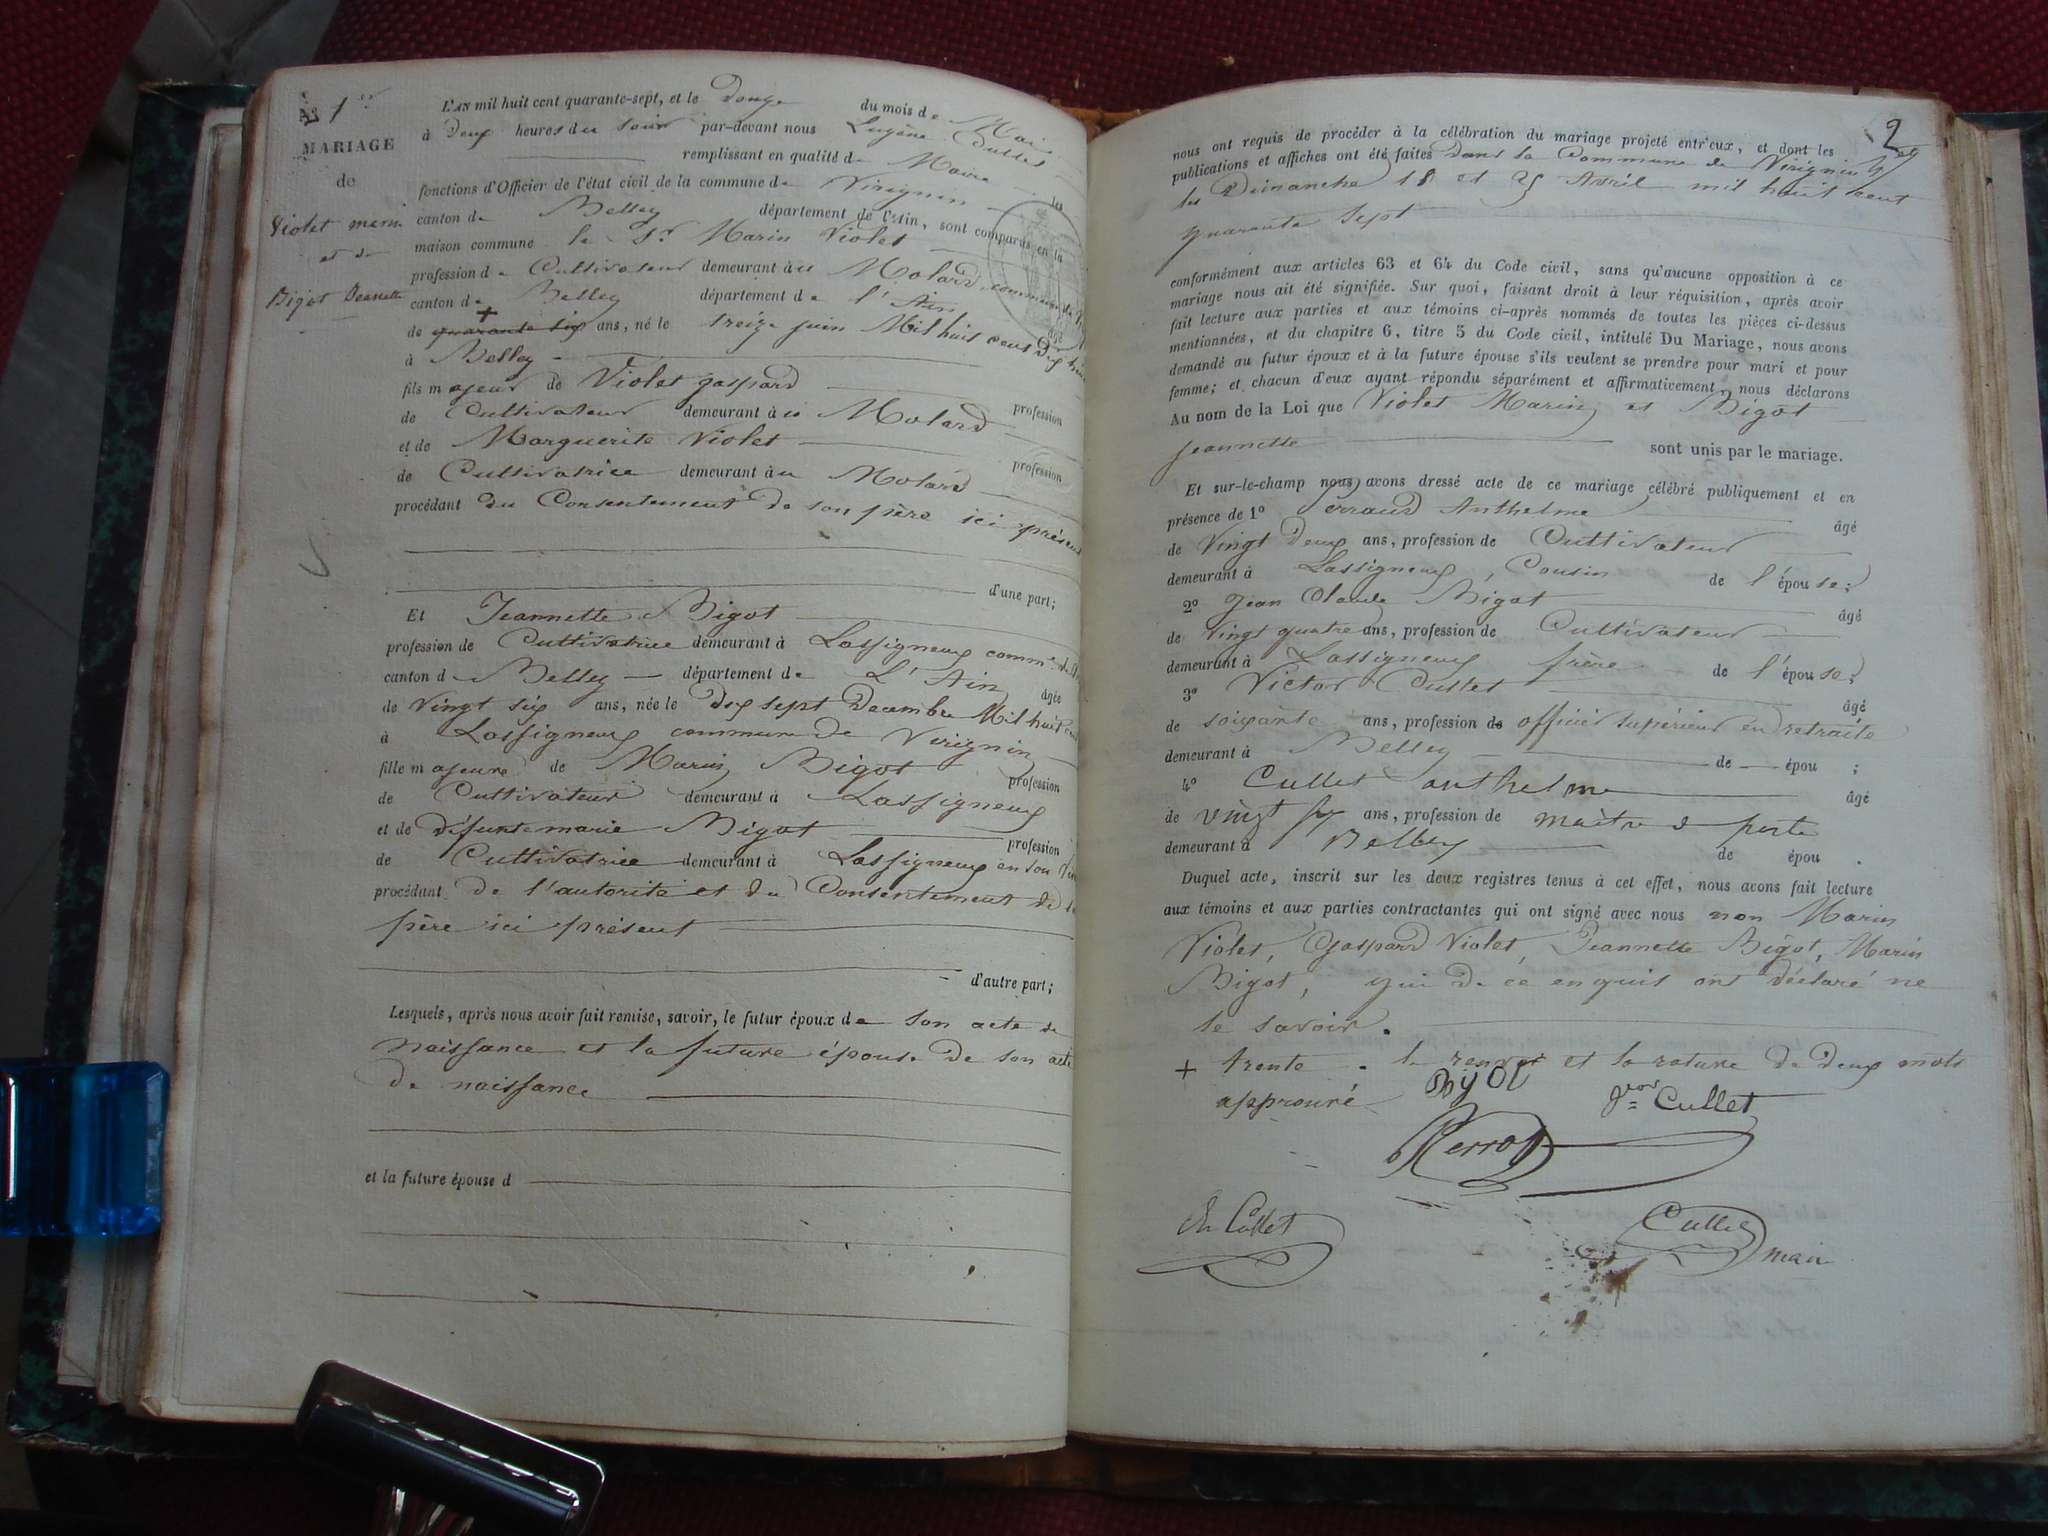 No 1er
MARIAGE
de
Violet marin
et de
Bigot Jeannette
L'AN mil huit cent quarante-sept, et le Douze du mois de Mai
à Deux heures du soir par-devant nous Eugène Cullet
remplissant en qualité de Maire les
fonctions d'Officier de l'état civil de la commune de Virignin
canton de Belley département de l'Ain, sont comparus en la
maison commune le Sr Marin Violet
profession de Cultivateur demeurant à u Molard commune de
canton de Belley département de l'Ain âgé
de + quarante six ans, né le treize juin Mil huit cent Dix huit
à Belley
fils majeur de Violet gaspard profession
de Cultivateur demeurant à u Molard
et de Marguerite Violet profession
de Cultivatrice demeurant à u Molard
procédant du Consentement de son père ici présent
d'une part;
Et Jeannette Bigot
profession de Cultivatrice demeurant à Lassigneux comm.e de
canton de Belley département de L'Ain âgée
de Vingt six ans, née le Dix sept Decembre Mil huit cent
à Lassigneux commune de Virignin
fille majeure de Marin Bigot profession
de Cultivateur demeurant à Lassigneux
et de défunte marie Bigot profession
de Cultivatrice demeurant à Lassigneux en son
procédant de l'autorité et du Consentement de
père ici présent
d'autre part;
Lesquels, après nous avoir fait remise, savoir, le futur époux de son acte de
naissance et la future épouse de son acte
de naissance
et la future épouse d
2
nous ont requis de procéder à la célébration du mariage projeté entr'eux, et dont les
publications et affiches ont été faites dans la Commune de Virignin
les Dimanche 18 et 25 Avril mil huit cent
quarante sept
conformément aux articles 63 et 64 du Code civil, sans qu'aucune opposition à ce
mariage nous ait été signifiée. Sur quoi, faisant droit à leur réquisition, après avoir
fait lecture aux parties et aux témoins ci-après nommés de toutes les pièces ci-dessus
mentionnées, et du chapitre 6, titre 5 du Code civil, intitulé Du Mariage, nous avons
demandé au futur époux et à la future épouse s'ils veulent se prendre pour mari et pour
femme; et chacun d'eux ayant répondu séparément et affirmativement, nous déclarons
Au nom de la Loi que Violet Marin et Bigot
Jeannette sont unis par le mariage.
Et sur-le-champ nous avons dressé acte de ce mariage célébré publiquement et en
présence de 1º Perraud Anthelme âgé
de Vingt Deux ans, profession de Cultivateur
demeurant à Lassigneux, Cousin de l'épouse;
2º Jean Claude Bigot âgé
de Vingt quatre ans, profession de Cultivateur
demeurant à Lassigneux frère de l'épouse;
3º Victor Cullet âgé
de soixante ans, profession de officier supérieur en retraite
demeurant à Belley de épou ;
4º Cullet anthelme âgé
de vingt six ans, profession de maître de poste
demeurant à Belley de épou .
Duquel acte, inscrit sur les deux registres tenus à cet effet, nous avons fait lecture
aux témoins et aux parties contractantes qui ont signé avec nous non Marin
Violet, Gaspard Violet, Jeannette Bigot, Marin
Bigot, qui de ce enquis ont déclaré ne
le savoir.
+ trente. le renvoi et la rature de deux mots
approuvé
Cullet
Cullet
Cullet
maire